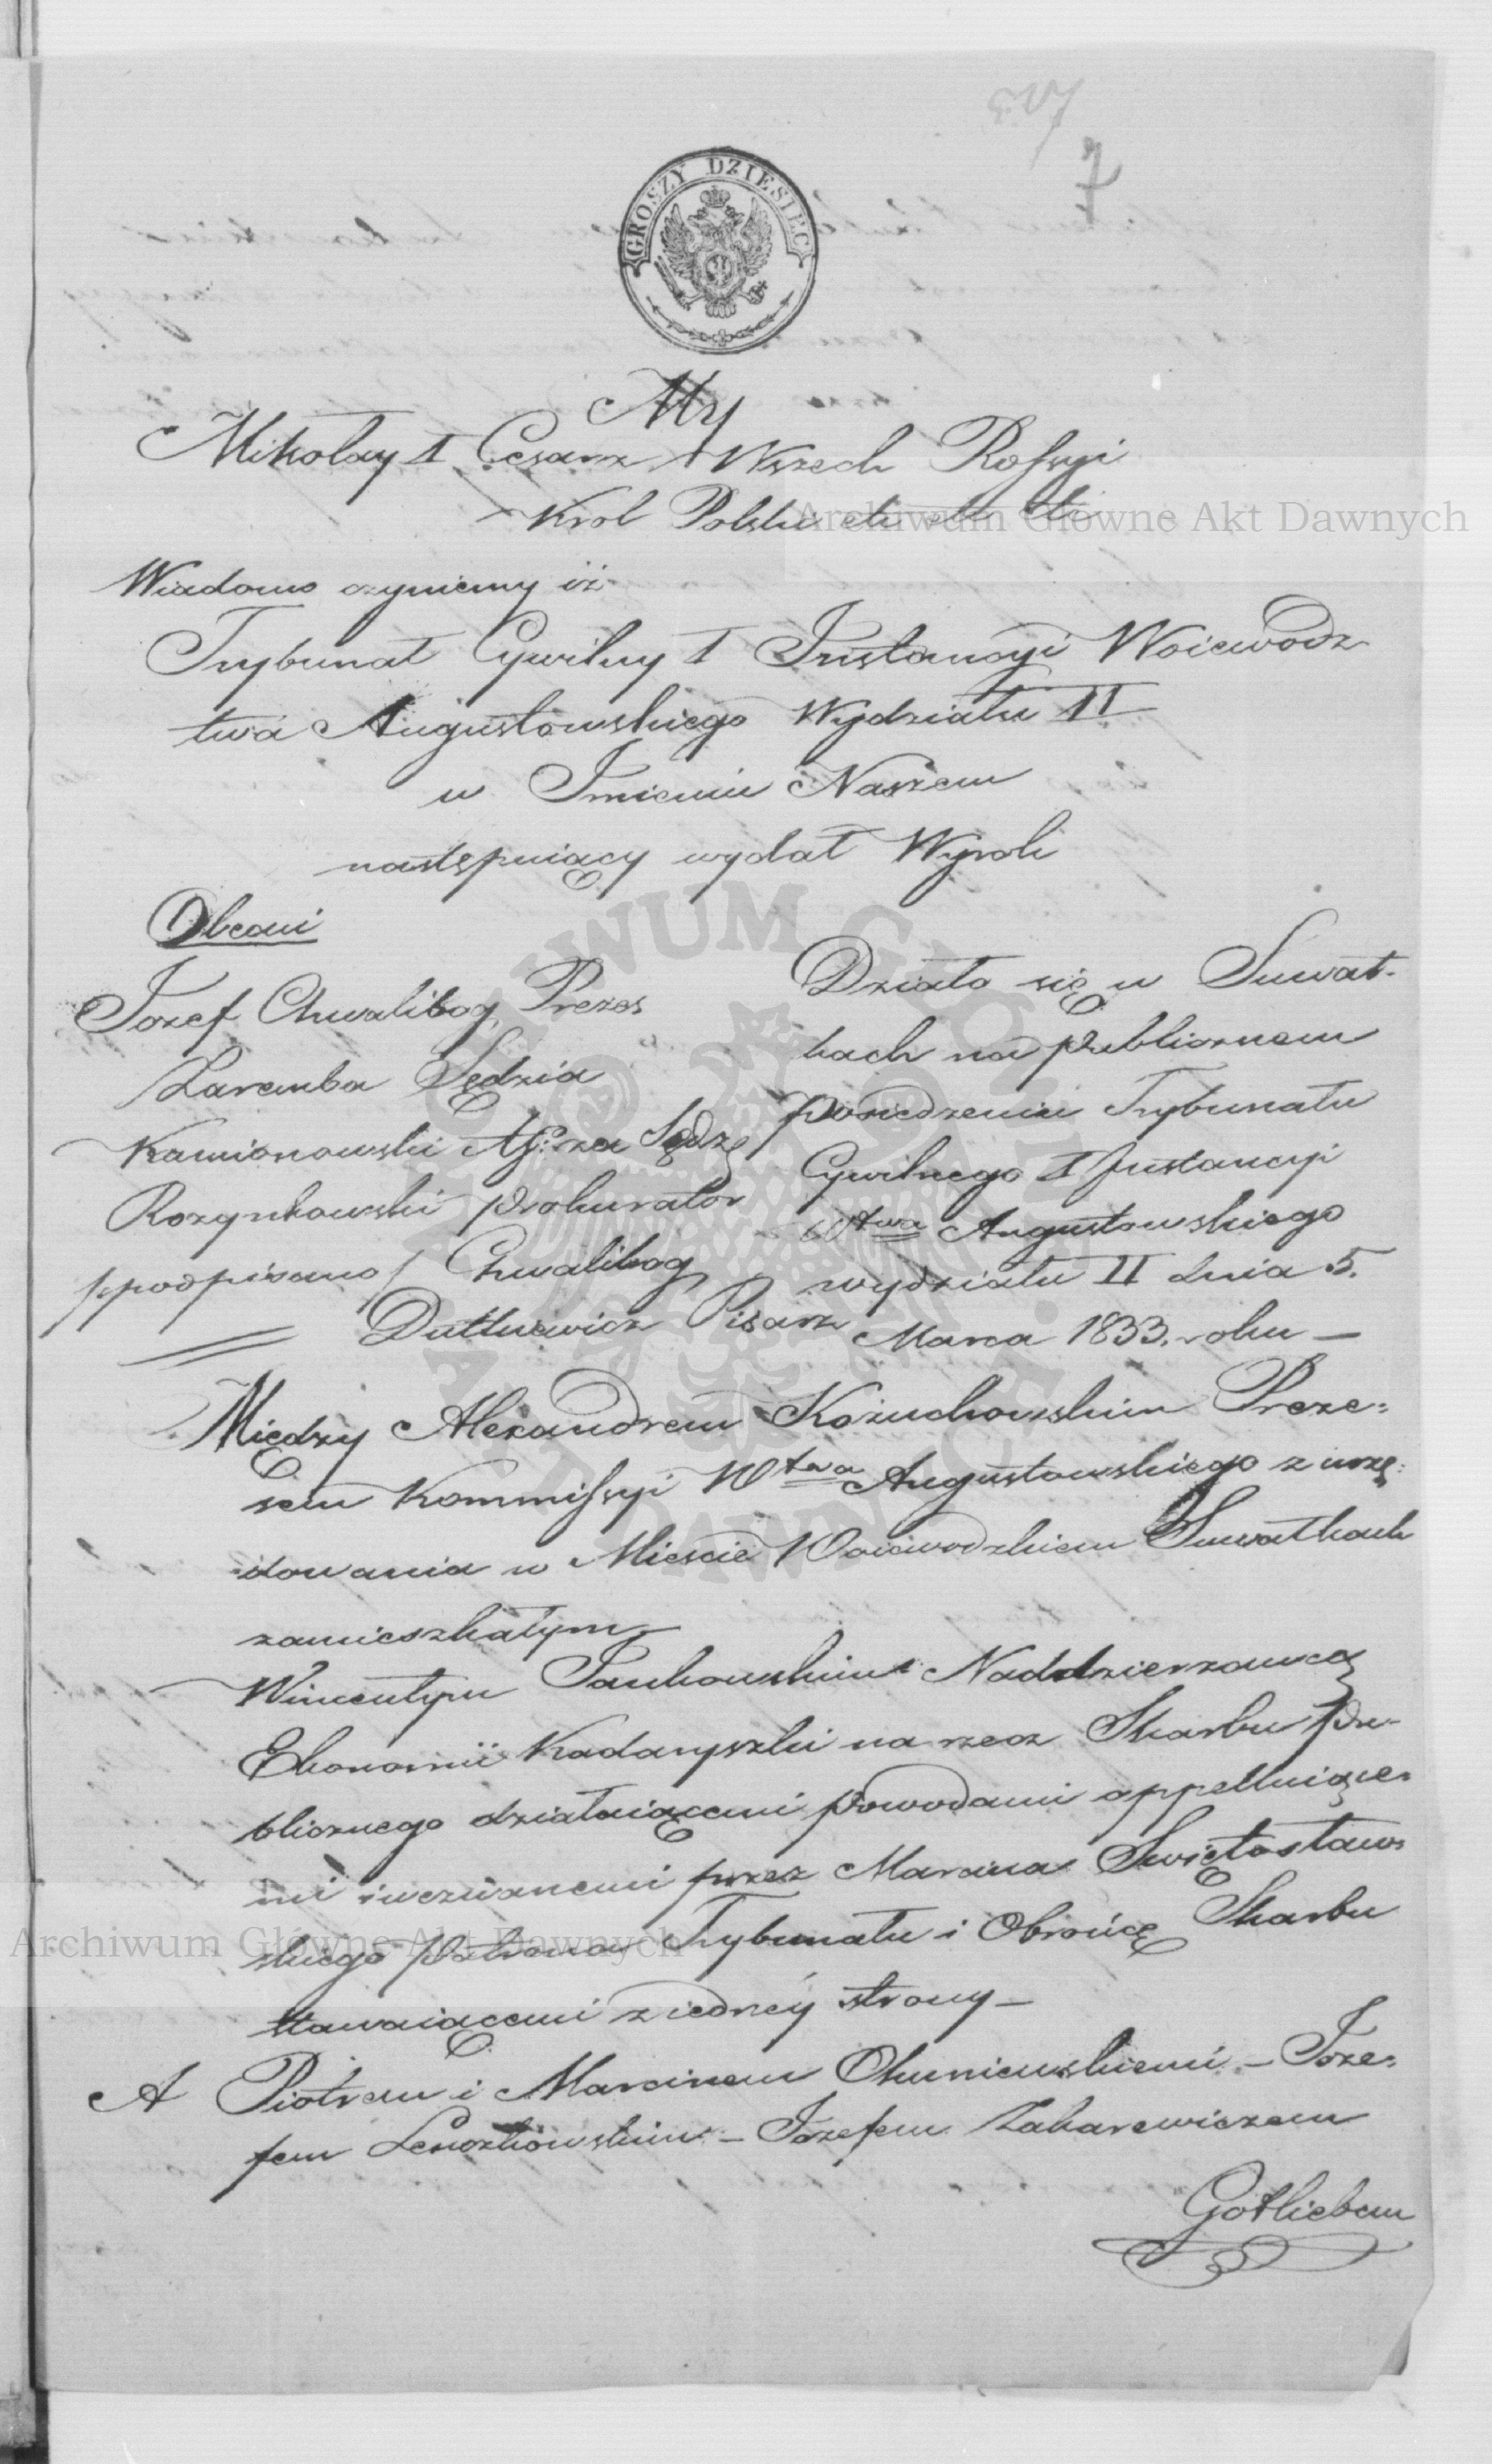 7
GROSZY DZIESIĘĆ
My
Mikołay I Cesarz Wszech Rossyi
Krol Polski etc etc etc
Archiwum Główne Akt Dawnych
Wiadomo czyniemy iż
Trybunał Cywilny I Instancyi Woiewodz
twa Augustowskiego Wydziału II
w Imieniu Naszem
następuiący wydał Wyrok
Obecni
Jozef Chwalibog Prezes
Zaremba Sędzia
Kamionowski As: za Sędz:
Rozynkowski Prokurator
/podpisano/ Chwalibog
Dutkiewicz Pisarz
Działo się w Suwał-
kach na publicznem
posiedzeniu Trybunału
Cywilnego I Instancyi
Wtwa Augustowskiego
wydziału II dnia 5.
Marca 1833. roku —
Między Alexandrem Kożuchowskim Preze:
sem Kommissyi Wtwa Augustowskiego z urzę:
dowania w Mieście Woiewodzkiem Suwałkach
zamieszkałym
Wincentym Jankowskim Naddzierzawcą
Ekonomii Kadaryszki na rzecz Skarbu pu-
blicznego działaiącemi powodami appelluiące-
mi i wezwanemi przez Marcina Swiętosław-
skiego Patrona Trybunału i Obrońcę Skarbu
Archiwum Główne Akt Dawnych
stawaiącemi z iedney strony —
A Piotrem i Marcinem Okuniewskiemi — Joze-
fem — Jozefem Zakarewiczem
Gotliebem